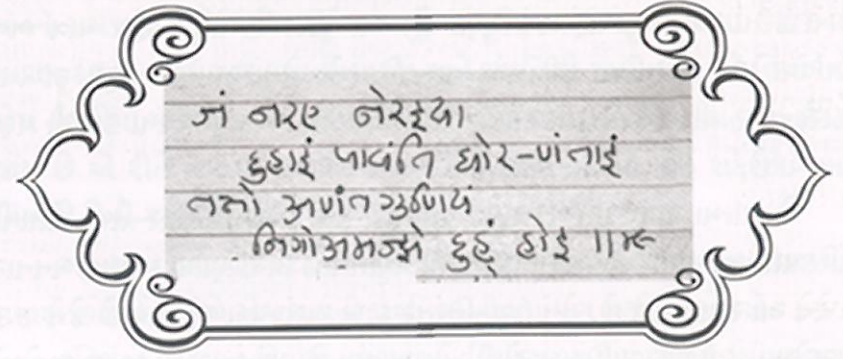 जं नरए नेरइया
दुहाइं पावंति घोर-णंताइं
तत्तो अणंत गुणियं
निगोअमज्झे दुहं होइ ॥४९